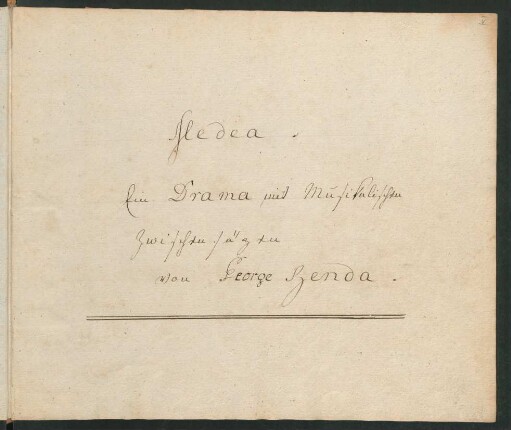 1
Medea.
Ein Drama mit Musikalischen
Zwischensäzen
von George Benda.